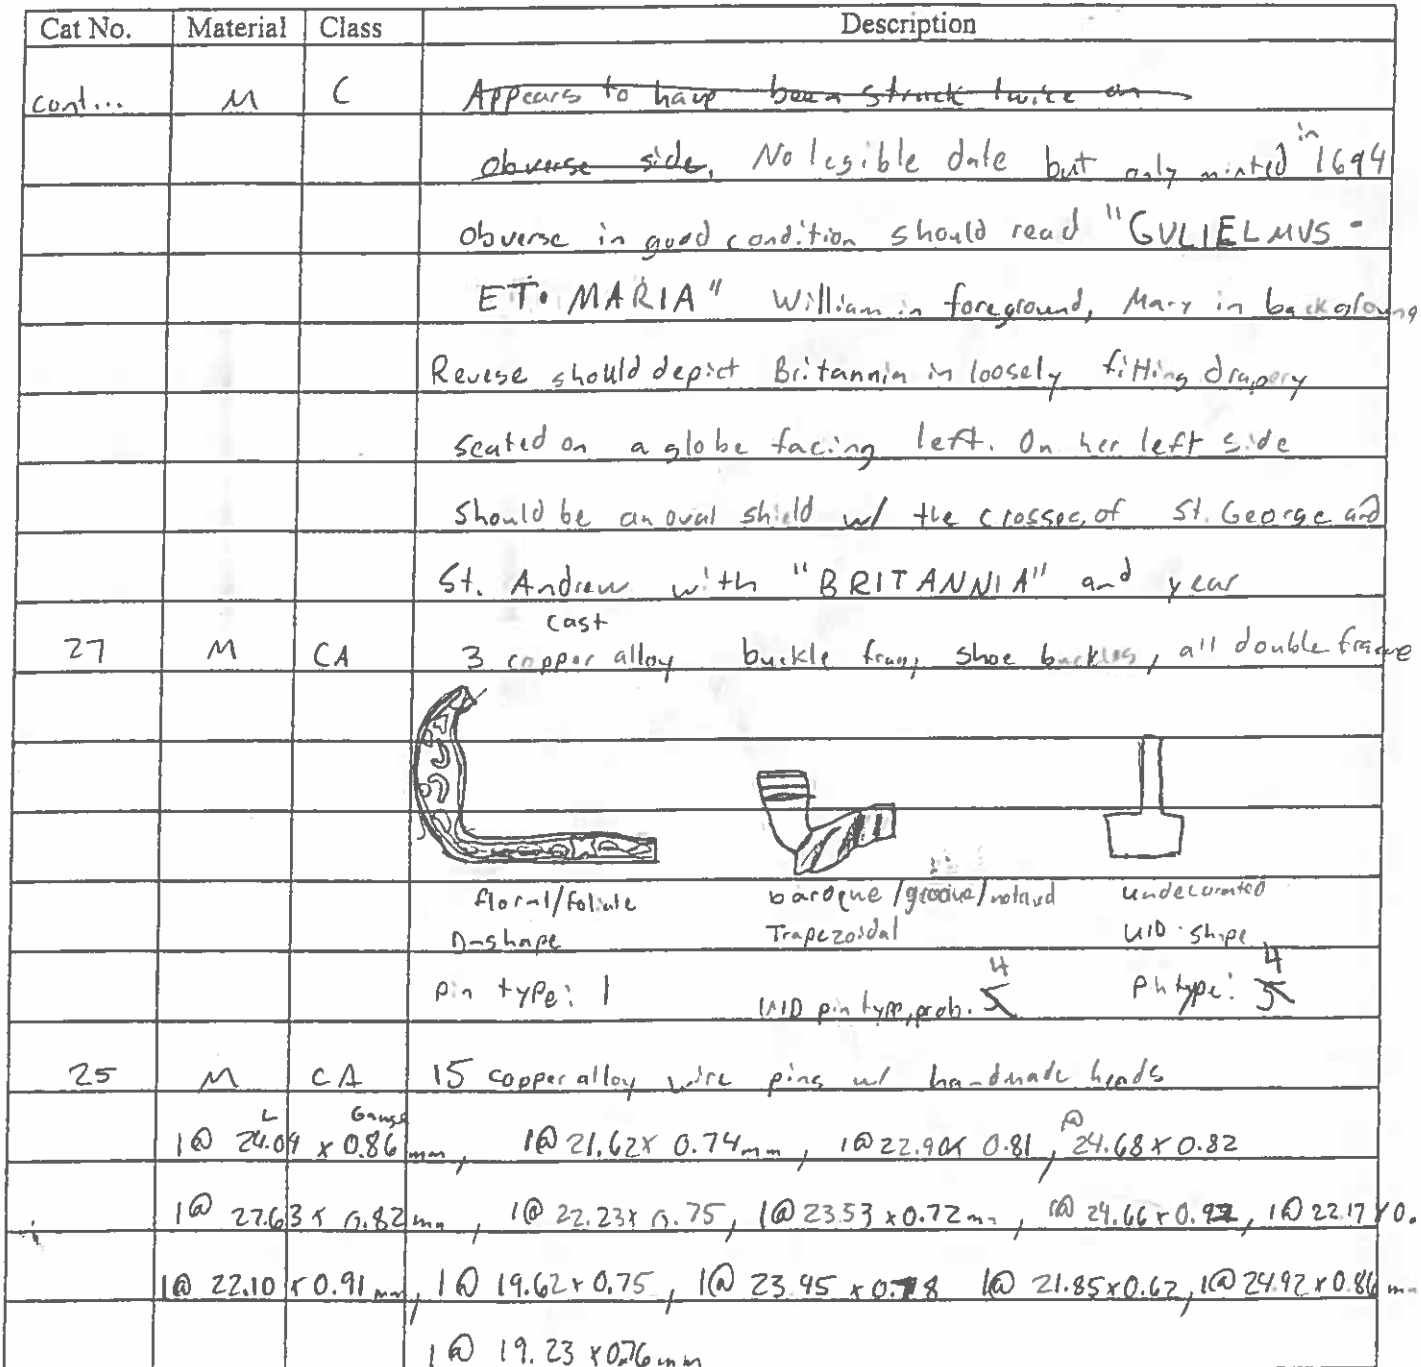 Cat No. Material Class Description
cont... M C Appears to have been struck twice on
obverse side. No legible date but only minted in 1694
obverse in good condition should read "GVLIELMVS •
ET• MARIA" William in foreground, Mary in background
Revese should depict Britannia in loosely fitting drapery
seated on a globe facing left. On her left side
should be an oval shield w/ the crosses of St. George and
St. Andrew with "BRITANNIA" and year
27 M CA 3 cast copper alloy buckle frag, shoe buckles, all double frame
floral/foliate baroque/groove/notched undecorated
D-shape Trapezoidal UID shape
pin type: 1 UID pin type, prob. 4 pin type: 4
25 M CA 15 copper alloy wire pins w/ handmade heads
L Gauge
1@ 24.09 x 0.86 mm, 1@ 21.62 x 0.74 mm, 1@ 22.90 x 0.81, @ 24.68 x 0.82
1@ 27.63 x 0.82 mm, 1@ 22.23 x 0.75, 1@ 23.53 x 0.72 mm, 1@ 24.66 x 1@ 22.17 x 0.
1@ 22.10 x 0.91 mm, 1@ 19.62 x 0.75, 1@ 23.45 x 0.78 1@ 21.85 x 0.62, 1@ 24.92 x 0.86 mm
1@ 19.23 x 0.76 mm